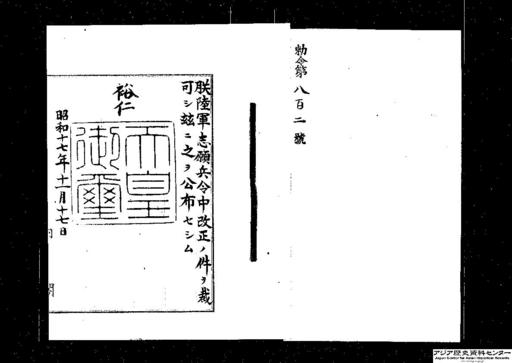 勅令第八百二號
朕陸軍志願兵令中改正ノ件ヲ裁
可シ玆ニ之ヲ公布セシム
裕仁
天皇御璽
昭和十七年十二月十七日
アジア歴史資料センター
Japan Center for Asian Historical Records